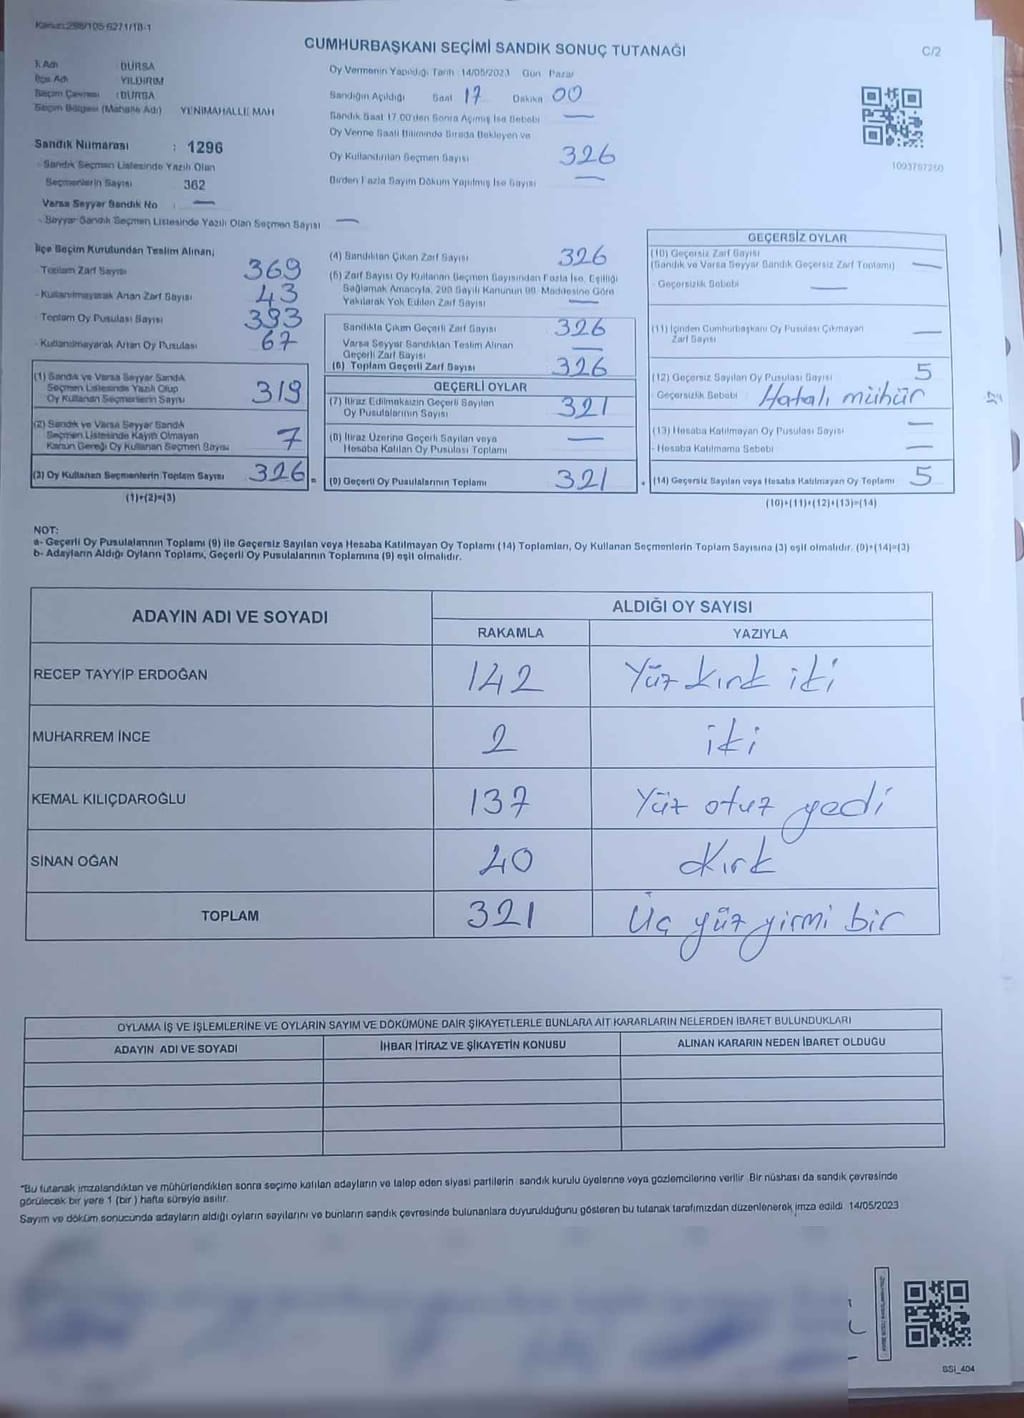 Kanun:298/105 6271/18-1
CUMHURBAŞKANI SEÇİMİ SANDIK SONUÇ TUTANAĞI
C/2
İl Adı : BURSA
İlçe Adı : YILDIRIM
Seçim Çevresi : BURSA
Seçim Bölgesi (Mahalle Adı) YENİMAHALLE MAH
Sandık Numarası : 1296
- Sandık Seçmen Listesinde Yazılı Olan
Seçmenlerin Sayısı 362
Varsa Seyyar Sandık No : —
- Seyyar Sandık Seçmen Listesinde Yazılı Olan Seçmen Sayısı —
Oy Vermenin Yapıldığı Tarih : 14/05/2023 Gün : Pazar
Sandığın Açıldığı Saat 17 Dakika 00
Sandık Saat 17.00'den Sonra Açılmış İse Sebebi —
Oy Verme Saati Bitiminde Sırada Bekleyen ve
Oy Kullandırılan Seçmen Sayısı 326
Birden Fazla Sayım Döküm Yapılmış İse Sayısı —
1093707250
İlçe Seçim Kurulundan Teslim Alınan;
- Toplam Zarf Sayısı 369
- Kullanılmayarak Artan Zarf Sayısı 43
- Toplam Oy Pusulası Sayısı 393
- Kullanılmayarak Artan Oy Pusulası 67
(1) Sandık ve Varsa Seyyar Sandık
Seçmen Listesinde Yazılı Olup
Oy Kullanan Seçmenlerin Sayısı 319
(2) Sandık ve Varsa Seyyar Sandık
Seçmen Listesinde Kayıtlı Olmayan
Kanun Gereği Oy Kullanan Seçmen Sayısı 7
(3) Oy Kullanan Seçmenlerin Toplam Sayısı 326
(1)+(2)=(3)
(4) Sandıktan Çıkan Zarf Sayısı 326
(5) Zarf Sayısı Oy Kullanan Seçmen Sayısından Fazla İse, Eşitliği
Sağlamak Amacıyla, 298 Sayılı Kanunun 98. Maddesine Göre
Yakılarak Yok Edilen Zarf Sayısı —
Sandıkta Çıkan Geçerli Zarf Sayısı 326
Varsa Seyyar Sandıktan Teslim Alınan
Geçerli Zarf Sayısı —
(6) Toplam Geçerli Zarf Sayısı 326
GEÇERLİ OYLAR
(7) İtiraz Edilmeksizin Geçerli Sayılan
Oy Pusulalarının Sayısı 321
(8) İtiraz Üzerine Geçerli Sayılan veya
Hesaba Katılan Oy Pusulası Toplamı —
(9) Geçerli Oy Pusulalarının Toplamı 321
GEÇERSİZ OYLAR
(10) Geçersiz Zarf Sayısı
(Sandık ve Varsa Seyyar Sandık Geçersiz Zarf Toplamı) —
- Geçersizlik Sebebi —
(11) İçinden Cumhurbaşkanı Oy Pusulası Çıkmayan
Zarf Sayısı —
(12) Geçersiz Sayılan Oy Pusulası Sayısı 5
- Geçersizlik Sebebi Hatalı mühür
(13) Hesaba Katılmayan Oy Pusulası Sayısı —
- Hesaba Katılmama Sebebi —
(14) Geçersiz Sayılan veya Hesaba Katılmayan Oy Toplamı 5
(10)+(11)+(12)+(13)=(14)
NOT:
a- Geçerli Oy Pusulalarının Toplamı (9) ile Geçersiz Sayılan veya Hesaba Katılmayan Oy Toplamı (14) Toplamları, Oy Kullanan Seçmenlerin Toplam Sayısına (3) eşit olmalıdır. (9)+(14)=(3)
b- Adayların Aldığı Oyların Toplamı, Geçerli Oy Pusulalarının Toplamına (9) eşit olmalıdır.
ADAYIN ADI VE SOYADI
ALDIĞI OY SAYISI
RAKAMLA YAZIYLA
RECEP TAYYİP ERDOĞAN 142 Yüz kırk iki
MUHARREM İNCE 2 iki
KEMAL KILIÇDAROĞLU 137 Yüz otuz yedi
SİNAN OĞAN 40 Kırk
TOPLAM 321 Üç yüz yirmi bir
OYLAMA İŞ VE İŞLEMLERİNE VE OYLARIN SAYIM VE DÖKÜMÜNE DAİR ŞİKAYETLERLE BUNLARA AİT KARARLARIN NELERDEN İBARET BULUNDUKLARI
ADAYIN ADI VE SOYADI İHBAR İTİRAZ VE ŞİKAYETİN KONUSU ALINAN KARARIN NEDEN İBARET OLDUĞU
*Bu tutanak imzalandıktan ve mühürlendikten sonra seçime katılan adayların ve talep eden siyasi partilerin sandık kurulu üyelerine veya gözlemcilerine verilir. Bir nüshası da sandık çevresinde
görülecek bir yere 1 (bir) hafta süreyle asılır.
Sayım ve döküm sonucunda adayların aldığı oyların sayılarını ve bunların sandık çevresinde bulunanlara duyurulduğunu gösteren bu tutanak tarafımızdan düzenlenerek imza edildi. 14/05/2023
SSI_404